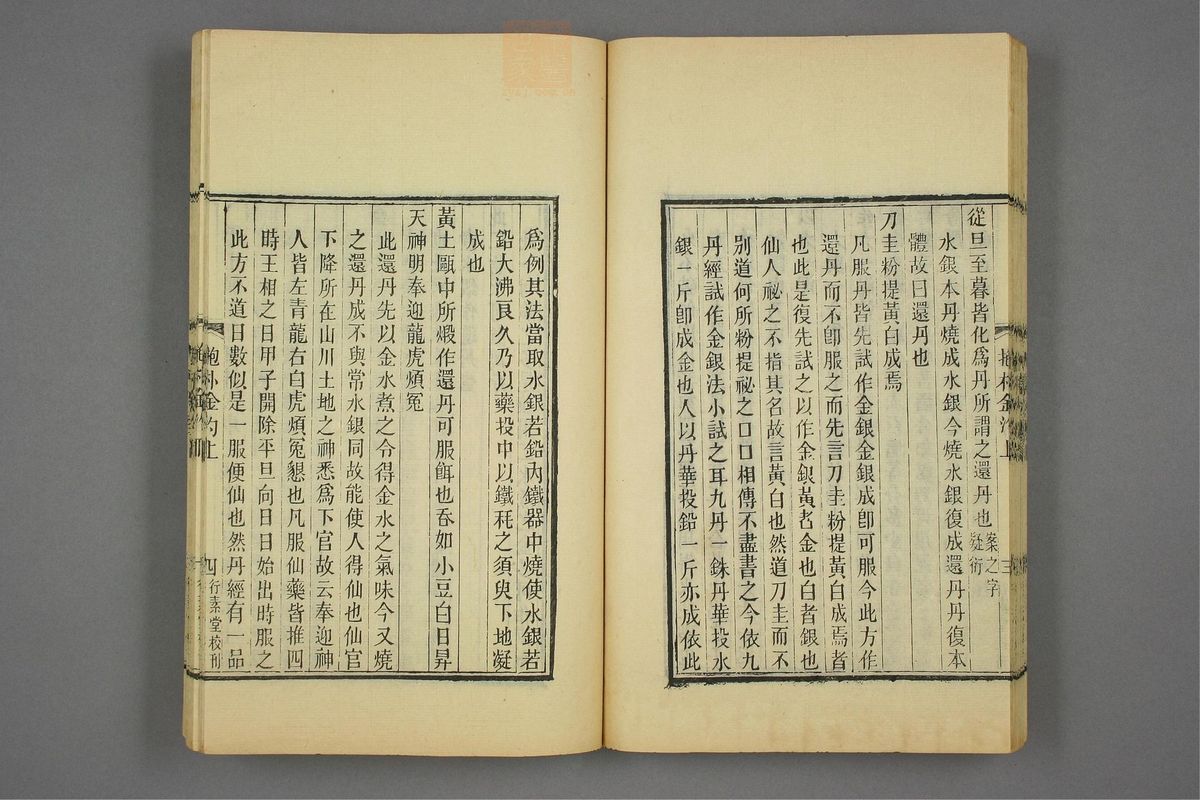 從旦至暮皆化爲丹所謂之還丹也案之字疑衍
水銀本丹燒成水銀今燒水銀復成還丹丹復本
體故曰還丹也
刀圭粉提黃白成焉
凡服丹皆先試作金銀金銀成卽可服今此方作
還丹而不卽服之而先言刀圭粉提黃白成焉者
也此是復先試之以作金銀黃者金也白者銀也
仙人祕之不指其名故言黃白也然道刀圭而不
別道何所粉提祕之口口相傳不盡書之今依九
丹經試作金銀法小試之耳九丹一銖丹華投水
銀一斤卽成金也人以丹華投鉛一斤亦成依此
抱朴金汋上
三
爲例其法當取水銀若鉛內鐵器中燒使水銀若
鉛大沸良久乃以藥投中以鐵秏之須臾下地凝
成也
黃土甌中所煅作還丹可服餌也吞如小豆白日昇
天神明奉迎龍虎煩冤
此還丹先以金水煮之令得金水之氣味今又燒
之還丹成不與常水銀同故能使人得仙也仙官
下降所在山川土地之神悉爲下官故云奉迎神
人皆左青龍右白虎煩冤懇也凡服仙藥皆推四
時王相之日甲子開除平旦向日日始出時服之
此方不道日數似是一服便仙也然丹經有一品
抱朴金汋上
四
行素堂校刊